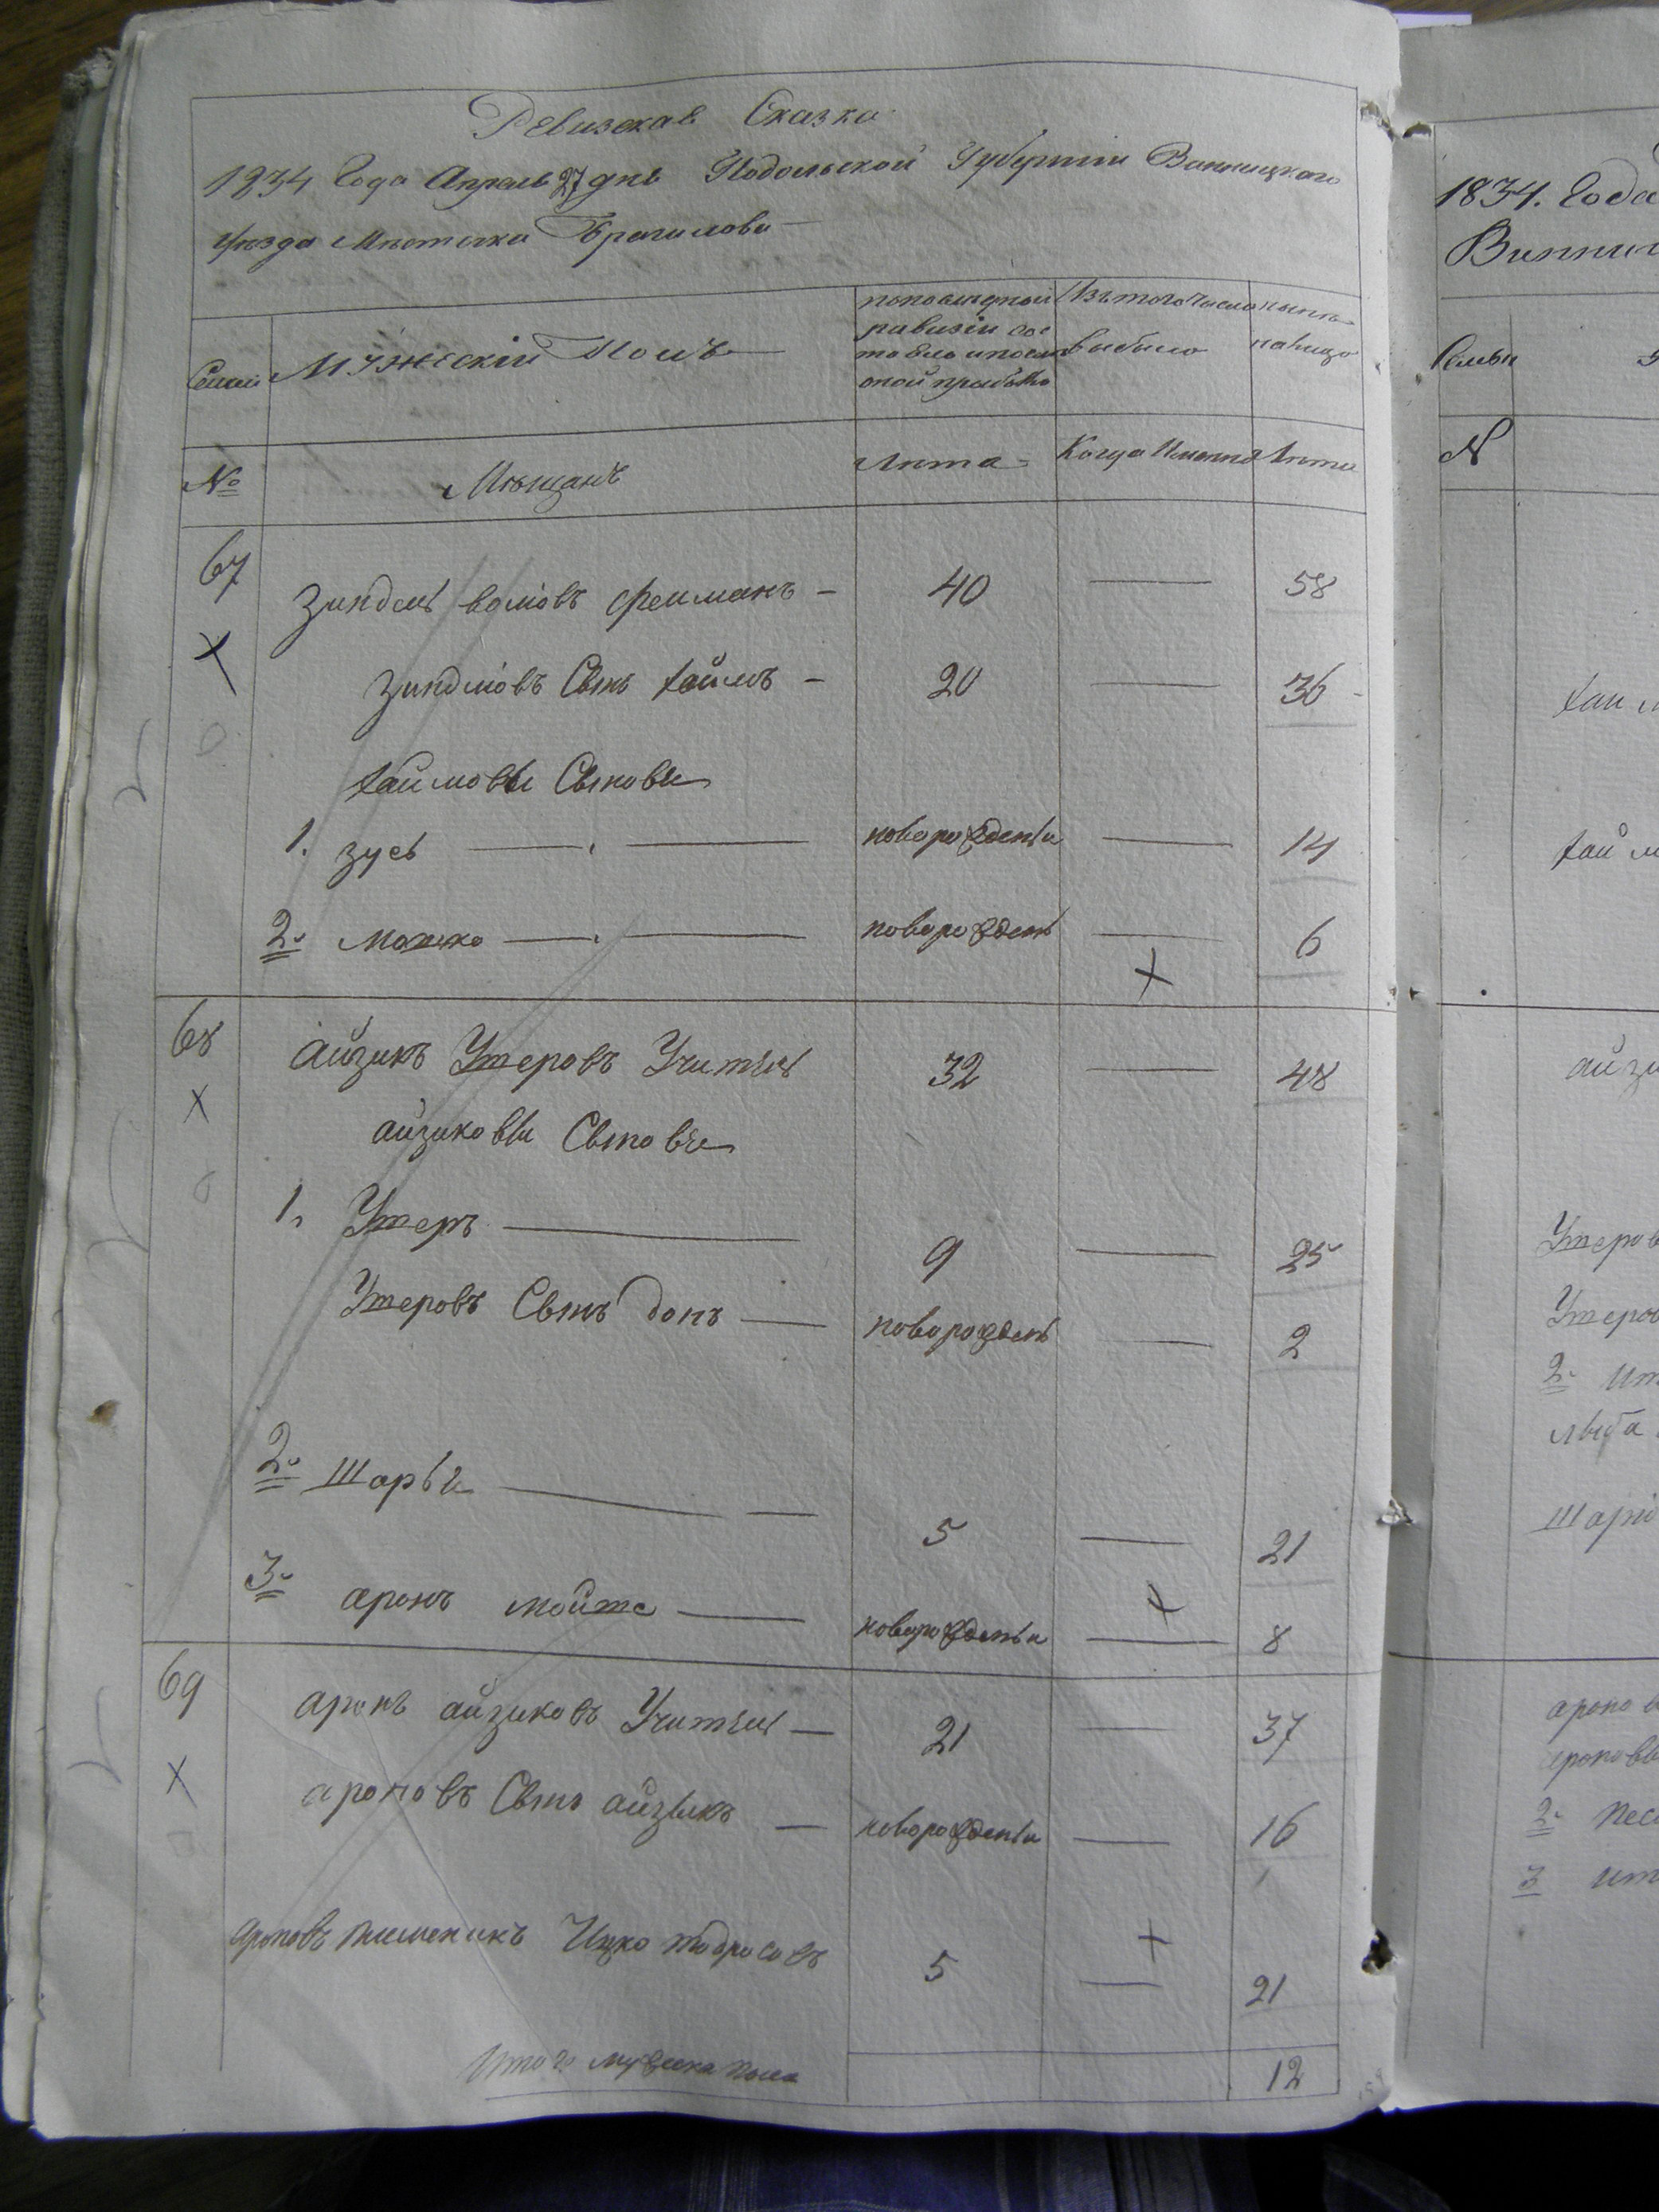 Ревизская Сказка
1834 Года Апреля 27 дня Подольской Губернии Винницкаго
Уезда Местечка Браилова
Семьи
Мужескій Полъ
по последней
ревизіи сос
тояло и после
оной прибыло
Изъ того числа
выбыло
ныне
на лицо
№
Мещанъ
Лета
Когда Именно
Лета
67
Зиндель волковъ фелманъ — 40 — 58
Зинделювъ Сынъ хаимъ — 20 — 36
хаимовы Сыновья
1. зусь — новорожденъи — 14
2. Мошко — новорожденъ — 6
68
айзикъ Ушеровъ Учитель 32 — 48
айзиковы Сыновья
1. Ушеръ — 9 — 25
Ушеровъ Сынъ — новорожденъ — 2
2. — 5 — 21
3. аронъ мойше — новорожденъи — 8
69
аронъ айзиковъ Учитель — 21 — 37
ароновъ Сынъ айзыкъ — новорожденъи — 16
Ароновъ племеникъ Ицко тодросовъ 5 — 21
Итого мужеска пола 12
1834. Года
Винниц
Семьи
№
хаим
хайм
айзи
Ушеров
Ушеров
2.
аронов
ароновы
2.
3